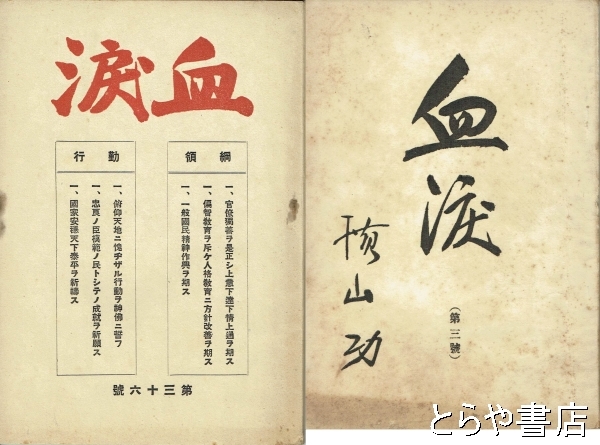 血淚
綱領
一、官僚獨善ヲ是正シ上意下達下情上通ヲ期ス
一、偏智敎育ヲ斥ケ人格敎育ニ方針改善ヲ期ス
一、一般國民精神作興ヲ期ス
勤行
一、俯仰天地ニ愧ヂザル行動ヲ神佛ニ誓フ
一、忠良ノ臣模範ノ民トシテノ成就ヲ祈願ス
一、國家安穩天下泰平ヲ祈禱ス
第三十六號
血淚
(第三號)
山功
とらや書店